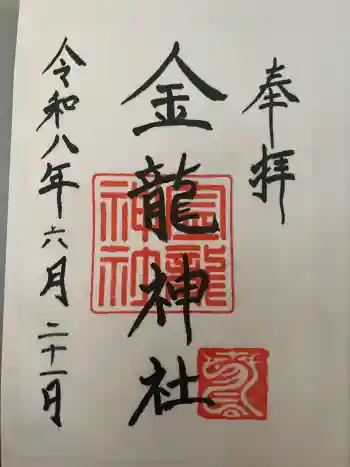 奉拝
金龍神社
金龍神社
令和八年六月二十一日